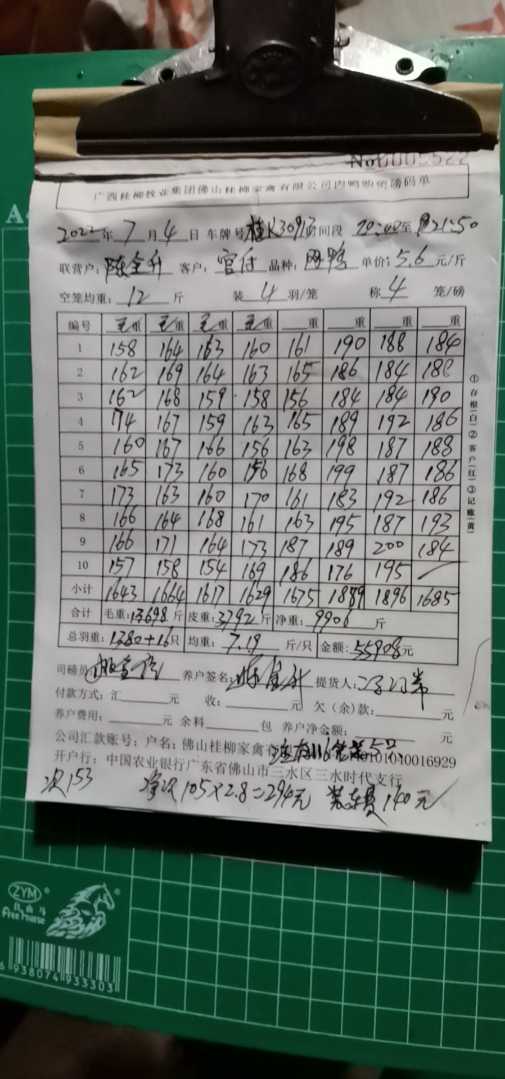 No 0005522
广西桂柳牧业集团佛山桂柳家禽有限公司肉鸭购销磅码单
2022年 7月 4日 车牌号 桂K3091 时间段 20:00至 21:50
联营户: 陈金升 客户: 官付 品种: 肉鸭 单价: 5.6 元/斤
空笼均重: 12 斤 装 4 羽/笼 称 4 笼/磅
编号 毛重 毛重 毛重 毛重 重 重 重 重
1 158 164 163 160 161 190 188 184
2 162 169 164 163 165 186 184 188
3 162 168 159 158 156 184 184 190
4 174 167 159 163 165 189 192 186
5 160 167 166 156 163 198 187 188
6 165 173 160 156 168 199 187 186
7 173 163 160 170 161 183 192 186
8 166 164 168 161 163 195 187 193
9 166 171 164 173 187 189 200 184
10 157 158 154 169 186 176 195
小计 1643 1664 1617 1629 1675 1889 1896 1685
合计 毛重: 13698 斤 皮重: 3792 斤 净重: 9906 斤
总羽重: 1380+16只 均重: 7.19 斤/只 金额: 55908元
①存根(白)②客户(红)③记账(黄)
司磅员: 养户签名: 陈金升 提货人:
付款方式: 汇 元 收: 元 欠(余)款: 元
养户费用: 元 余料 包 养户净金额: 元
公司汇款账号: 户名: 佛山桂柳家禽 01010040016929
开户行: 中国农业银行广东省佛山市三水区三水时代支行
次153 净次105×2.8=294元 装车费140元
ZYM
Free Horse
6 938074 933303